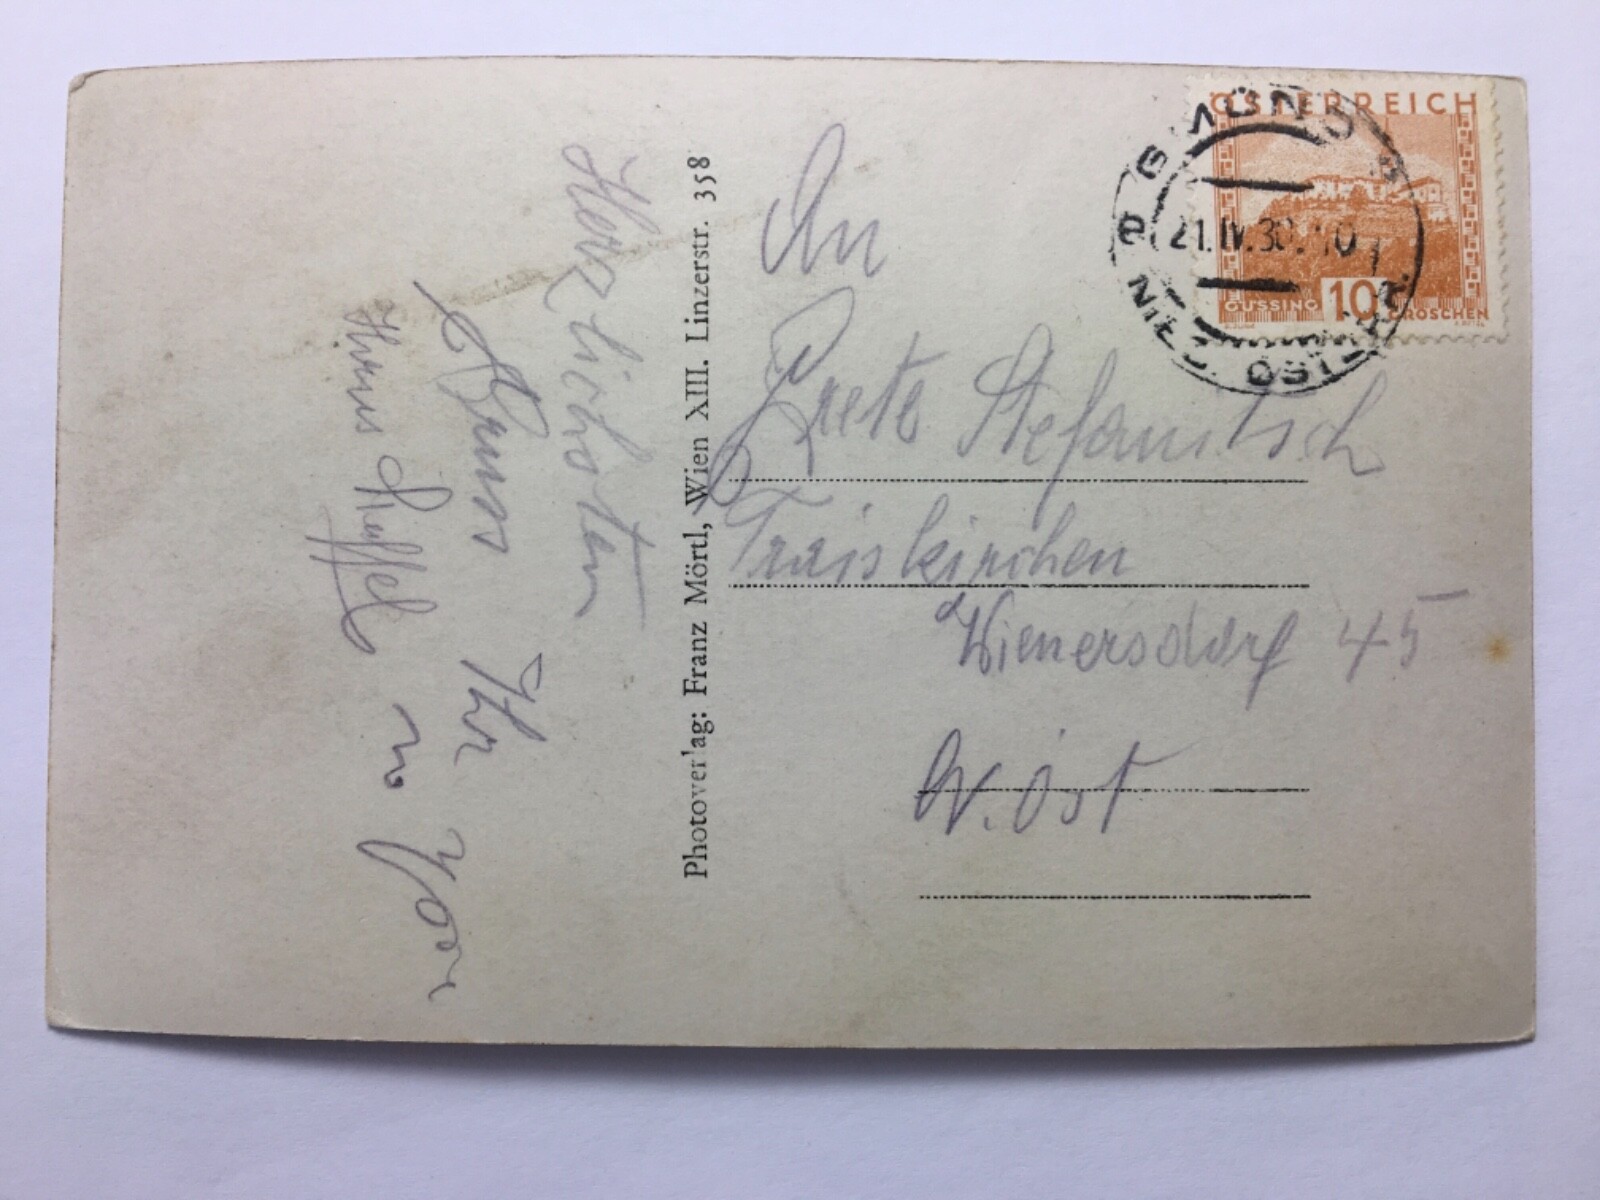 ÖSTERREICH
GÜSSING 10 GROSCHEN
GMÜND
21.IV.30. 10
NIED. ÖSTERR.
An
Grete Stefanitsch
Traiskirchen
Wienersdorf 45
N. Öst
Photoverlag: Franz Mörtl, Wien XIII. Linzerstr. 358
Herzlichsten
Gruss Ihr
Hans